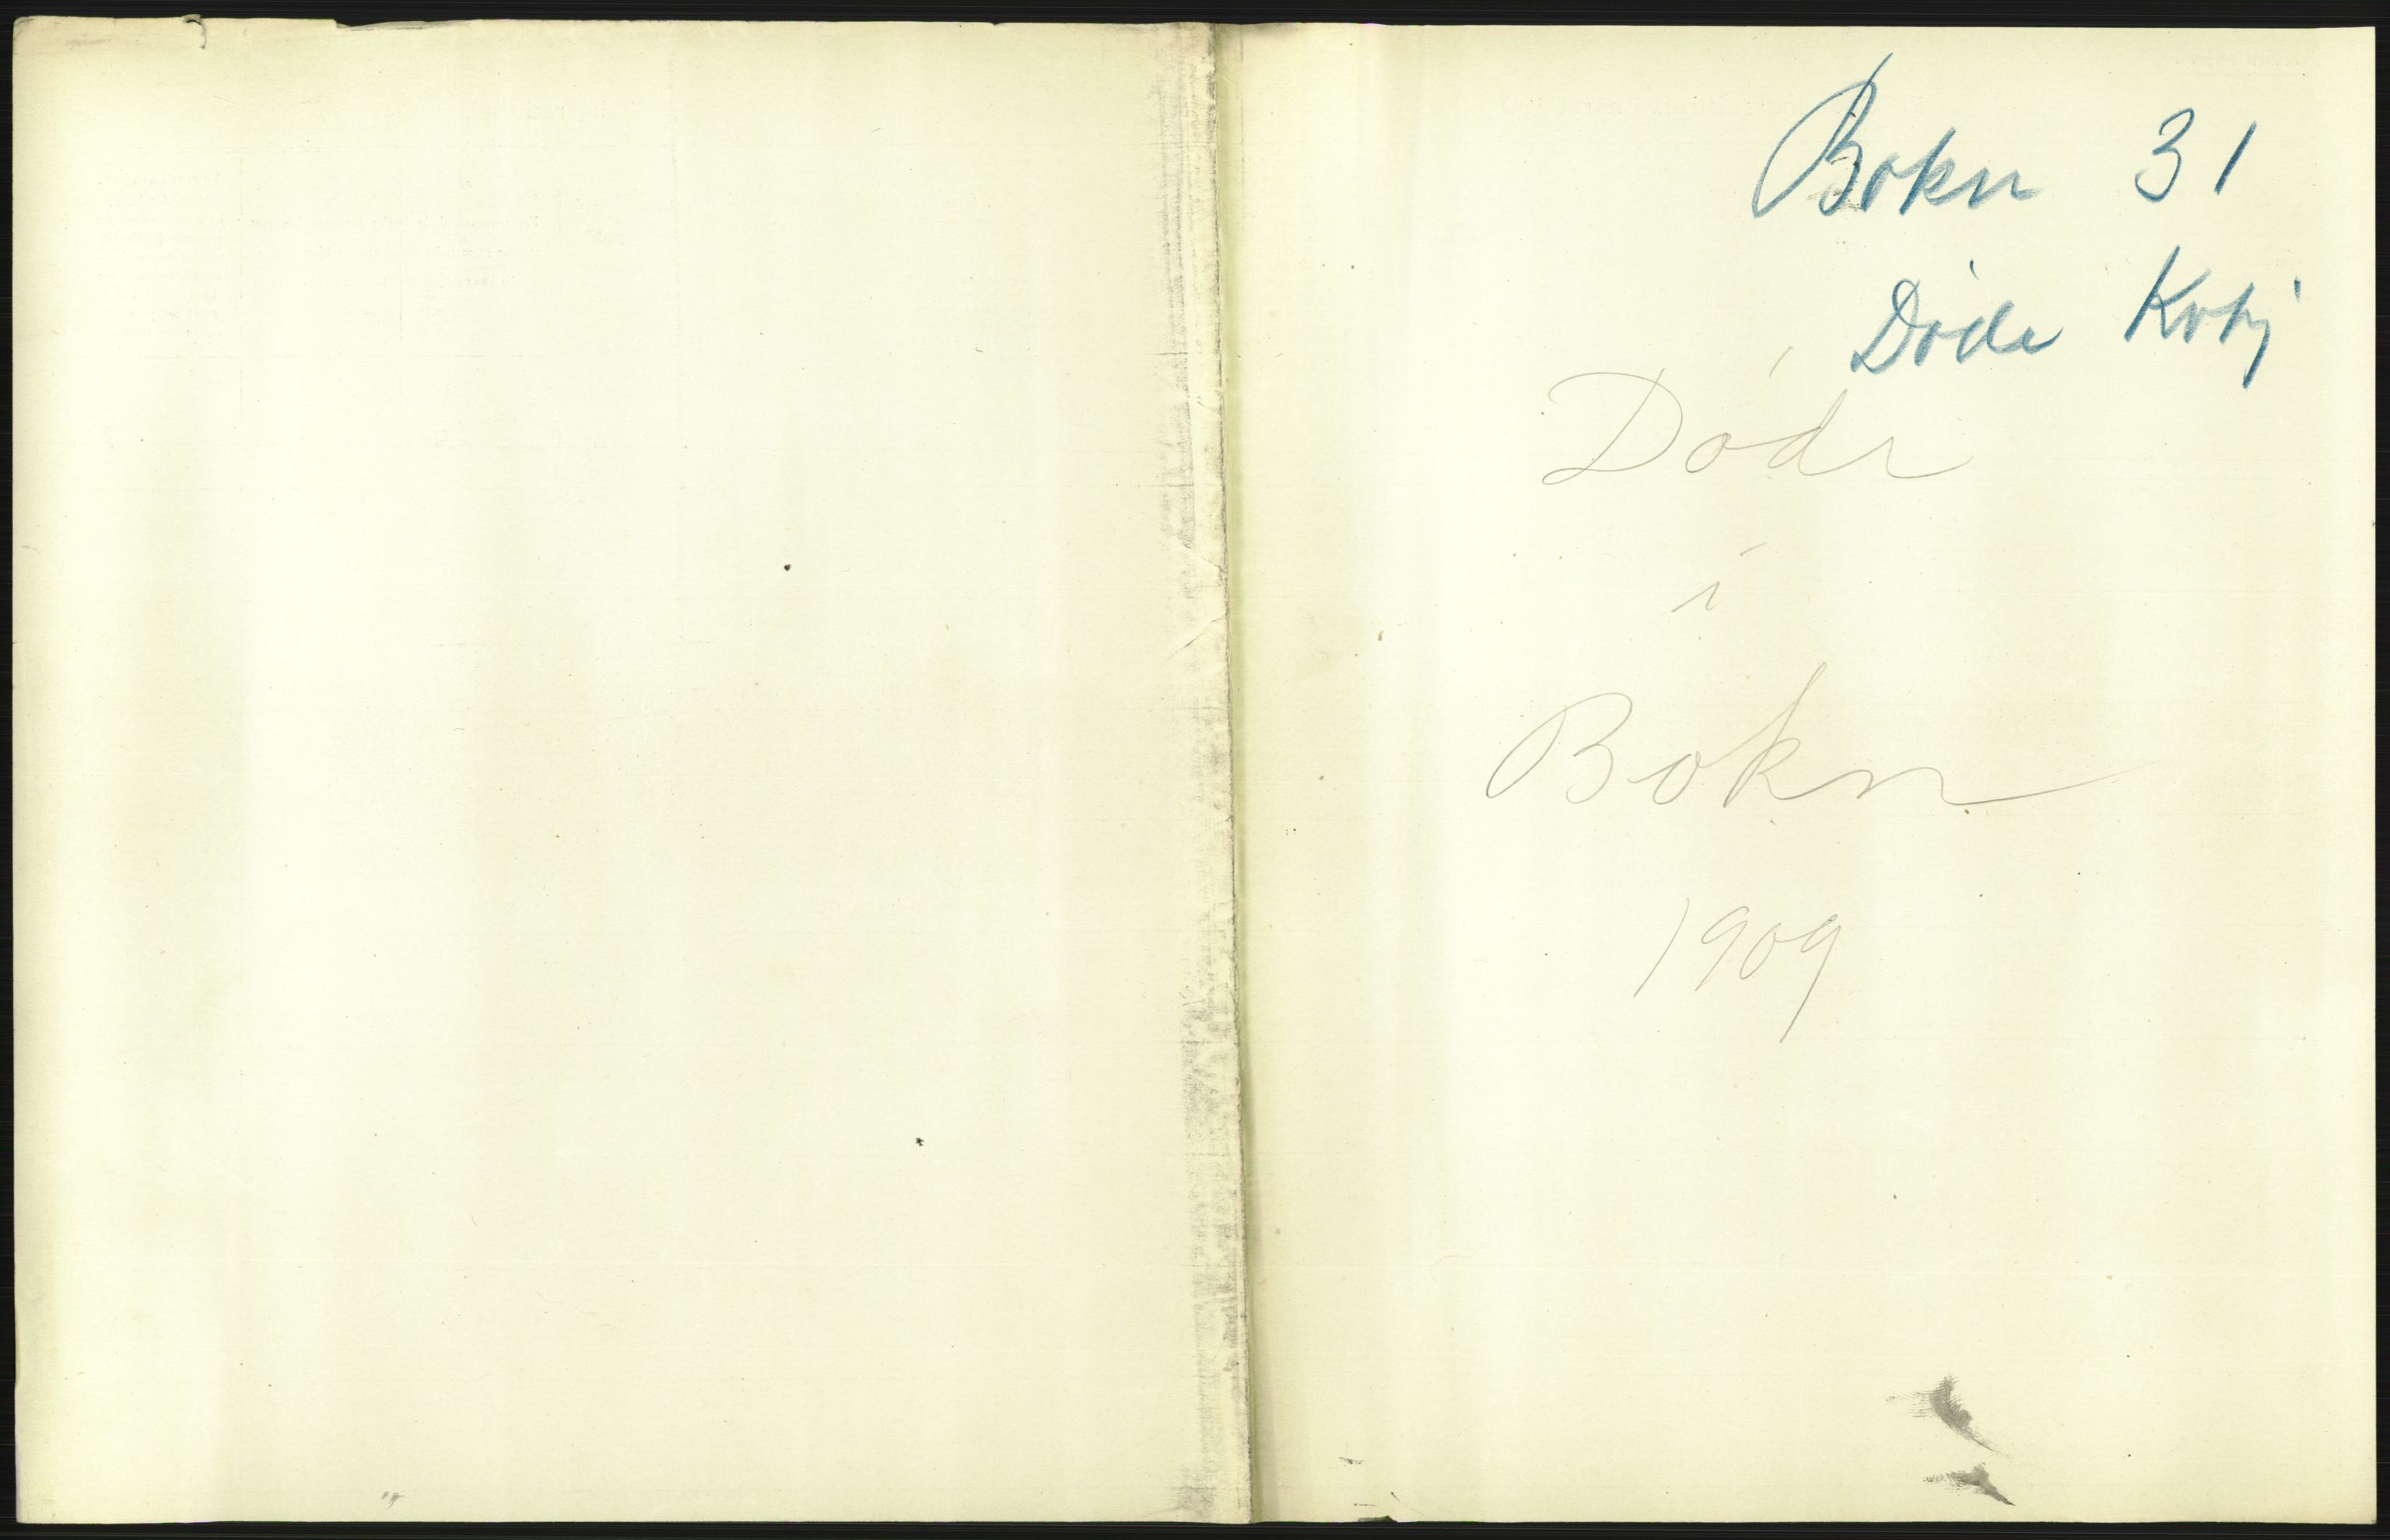 Bokn 31
Døde Kvkj
Døde
i
Bokn
1909